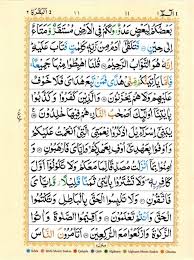 البقرة ٢
الٓمّٓ ١
بَعْضُكُمْ لِبَعْضٍ عَدُوٌّ وَلَكُمْ فِي الْاَرْضِ مُسْتَقَرٌّ وَّ
مَتَاعٌ اِلٰى حِيْنٍ فَتَلَقّٰٓى اٰدَمُ مِنْ رَّبِّهٖ كَلِمٰتٍ فَتَابَ عَلَيْهِ
اِنَّهٗ هُوَ التَّوَّابُ الرَّحِيْمُ قُلْنَا اهْبِطُوْا مِنْهَا جَمِيْعًا
فَاِمَّا يَاْتِيَنَّكُمْ مِّنِّيْ هُدًى فَمَنْ تَبِعَ هُدَايَ فَلَا خَوْفٌ
عَلَيْهِمْ وَلَا هُمْ يَحْزَنُوْنَ وَالَّذِيْنَ كَفَرُوْا وَكَذَّبُوْا
بِاٰيٰتِنَآ اُولٰٓئِكَ اَصْحٰبُ النَّارِ هُمْ فِيْهَا خٰلِدُوْنَ
يٰبَنِيْٓ اِسْرَآءِيْلَ اذْكُرُوْا نِعْمَتِيَ الَّتِيْٓ اَنْعَمْتُ عَلَيْكُمْ
وَاَوْفُوْا بِعَهْدِيْٓ اُوْفِ بِعَهْدِكُمْ وَاِيَّايَ فَارْهَبُوْنِ
وَاٰمِنُوْا بِمَآ اَنْزَلْتُ مُصَدِّقًا لِّمَا مَعَكُمْ وَلَا تَكُوْنُوْٓا اَوَّلَ
كَافِرٍۢ بِهٖ وَلَا تَشْتَرُوْا بِاٰيٰتِيْ ثَمَنًا قَلِيْلًا وَّاِيَّايَ
فَاتَّقُوْنِ وَلَا تَلْبِسُوا الْحَقَّ بِالْبَاطِلِ وَتَكْتُمُوا
الْحَقَّ وَاَنْتُمْ تَعْلَمُوْنَ وَاَقِيْمُوا الصَّلٰوةَ وَاٰتُوا
الزَّكٰوةَ وَارْكَعُوْا مَعَ الرّٰكِعِيْنَ اَتَاْمُرُوْنَ النَّاسَ